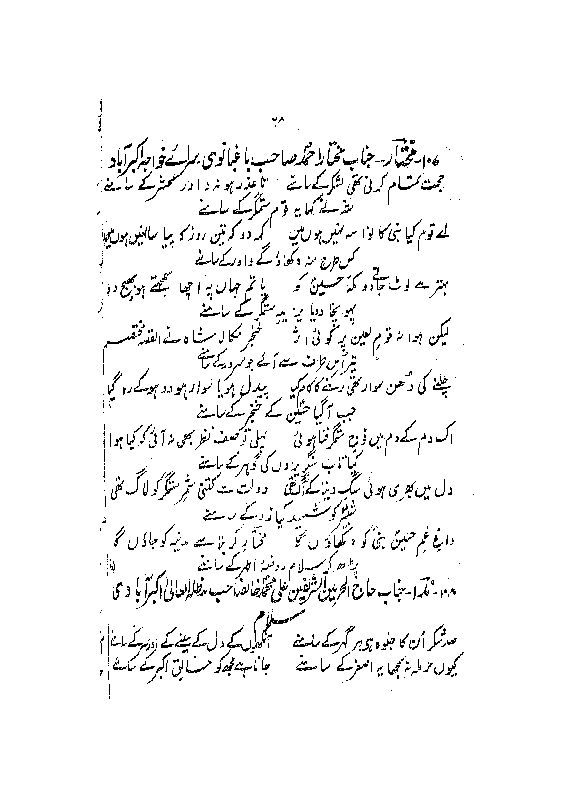 ۶۸
۱۰۷۔ مختار۔ جناب مختار احمد صاحب باغبانوی سرائے خواجہ اکبرآباد
حجت تمام کرنی تھی لشکر کے سامنے تا عذر ہو نہ داور محشر کے سامنے
شہ نے کہا یہ قوم ستمگر کے سامنے
اے قوم کیا نبی کا نواسہ نہیں ہوں میں کہہ دو کہ تین روز کا پیاسا نہیں ہوں میں
کس طرح منہ دکھاؤ گے داور کے سامنے
بہتر ہے لوٹ جانے دو مجھ حسین کو یا تم جہاں پہ اچھا سمجھتے ہو بھیج دو
پہونچا دو یا یزید ستمگر کے سامنے
لیکن ہوا نہ قوم لعین پر کوئی اثر خنجر نکالا شاہ نے القصہ مختصر
پھر اس طرف سے آئے جو سرور کے سامنے
چلنے کی دھن سوار تھی رستے کا کام کیا پیدل ہو یا سوار ہو دو ہو کے رہ گیا
جب آ گیا حسین کے خنجر کے سامنے
اک دم کے دم میں فوج ستمگر فنا ہوئی پہلی تو صف نظر بھی نہ آئی کہ کیا ہوا
کیا تاب سنگریزوں کی گوہر کے سامنے
دل میں بھری ہوئی سگ دنیا کے آگ تھی دولت سے کتنی شمر ستمگر کو لاگ تھی
شہ کو شہید کیا زر کے سامنے
داغ غم حسین نبی کو دکھاؤں گا مختار کربلا سے مدینہ کو جاؤں گا
پڑھ کر سلام روضۂ اطہر کے سامنے
۱۰۸۔ جناب حاج الحرمین الشریفین علی مختار خانصاحب مدظلہ العالی اکبرآبادی
سلام
صد شکر ان کا جلوہ ہی ہر گھر کے سامنے آنکھوں کے دل کے سینے کے اور سر کے سامنے
کیوں حرملہ نہ سمجھا یہ اصغر کے سامنے جانا ہے مجھ کو خالق اکبر کے سامنے